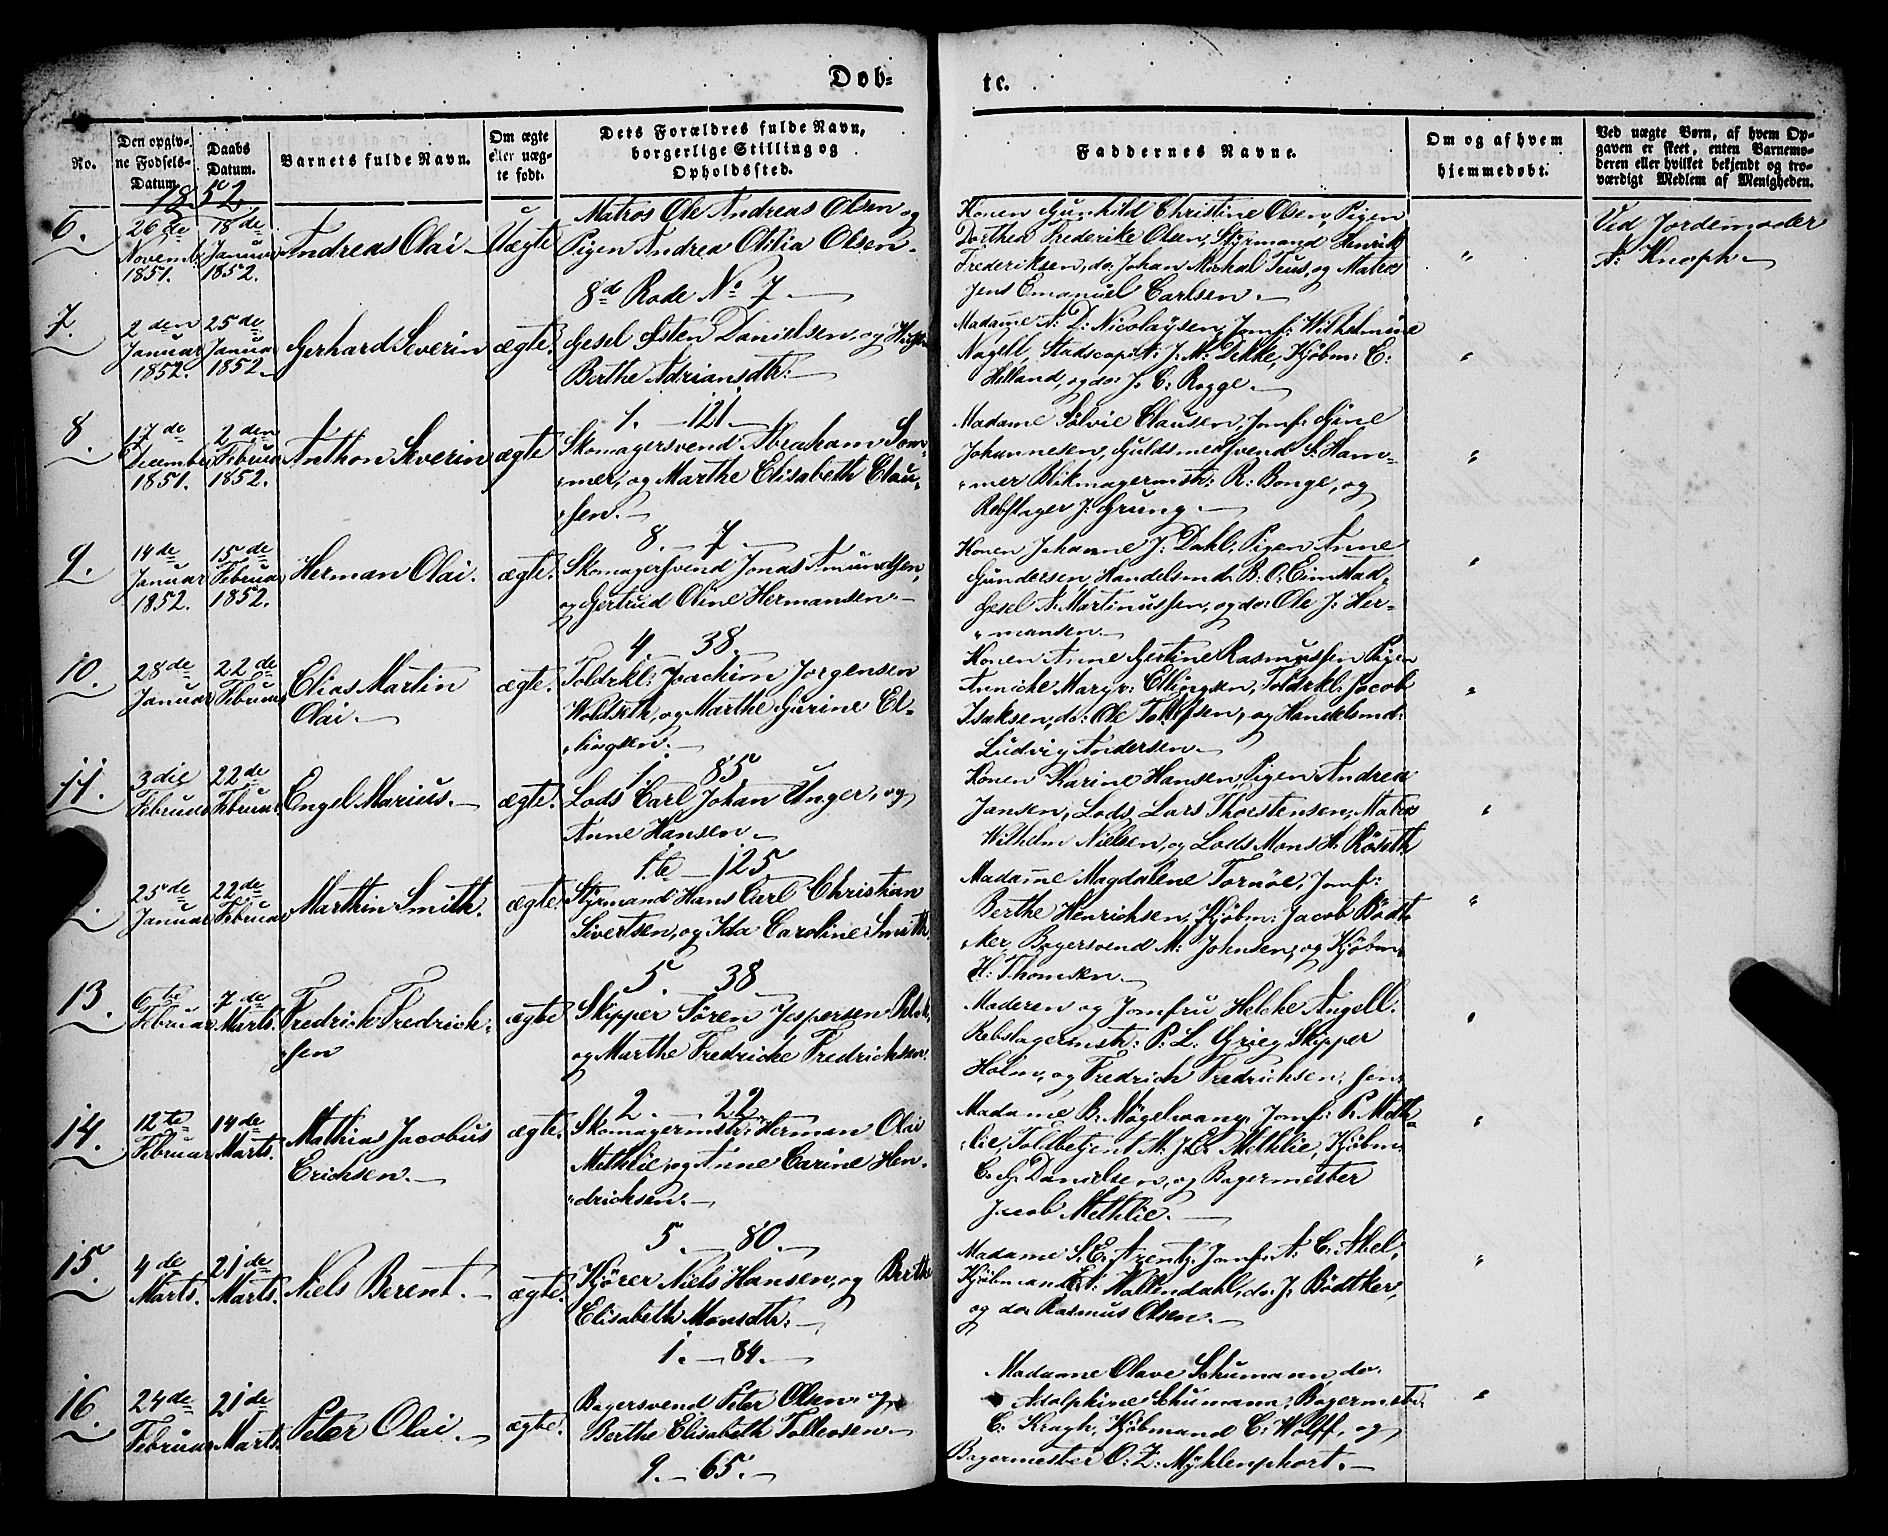 Døb=
te.
No.
Den opgiv-
ne Fødsels-
Datum.
Daabs
Datum.
Barnets fulde Navn.
Om ægte
eller uæg-
te født.
Dets Forældres fulde Navn,
borgerlige Stilling og
Opholdssted.
Faddernes Navne.
Om og af hvem
hjemmedøbt.
Ved uægte Børn, af hvem Op-
gaven er skeet, enten Barnemo-
deren eller hvilket bekjendt og tro-
værdigt Medlem af Menigheden.
1852.
6.
26de
Novemb:
1851.
18de
Januar
1852.
Andreas Olai
Uægte
Matros Ole Andreas Olsen og
Pigen Andrea Otilia Olsen.
8d Rode No 7
Konen Gunhild Christine Olsen, Pigen
Dorthea Frederike Olsen, Styrmand Henrik
Frederiksen, do: Johan Michal Tuus, og Matros
Jens Emanuel Carlsen.
"
Ved Jordemoder
A: Knoph.
7.
2den
Januar
1852.
25de
Januar
1852.
Gerhard Severin
ægte.
Gesel Østen Danielsen, og
Berthe Adriansdtr:
1. 121.
Madame A: D: Nicolaysen, Jomf: Wilhelmine
Nagel, Stadscapt: J: M: Dekke, Kjøbm: C:
Helland, og do: J: C: Rogge.
"
8.
17de
December
1851.
2den
Februar
1852.
Anthon Severin
ægte
Skomagersvend Abraham Som-
mer, og Marthe Elisabeth Clau-
sen.
8. 7
Madame Sølvie Clausen, Jomf: Gine
Johannesen, Guldsmedsvend S: Ham-
mer Blikmagermstr: R: Bonge, og
Rebslager J: Grung.
"
9.
14de
Januar
1852.
15de
Februar
1852.
Herman Olai.
ægte.
Skomagersvend Jonas Amundsen,
og Gertrud Oline Hermansen.
4. 38.
Konen Johanne J: Dahl, Pigen Anne
Gundersen, Handelsmd. B: O: Eimstad,
Gesel A: Martinussen, og do: Ole J: Her-
mansen.
"
10.
28de
Januar
22de
Februar
Elias Martin
Olai.
ægte.
Toldrkl: Joachim Jørgensen
Woldseth, og Marthe Gurine El-
lingsen.
1. 85.
Konen Anne Gertine Rasmussen Pigen
Annicke Margr: Ellingsen, Toldrkl: Jacob
Isaksen, do: Ole Tollefsen, og Handelsmd:
Ludvig Andersen.
"
11.
3die
Februar
22de
Februar
Engel Marius.
ægte.
Lods Carl Johan Unger, og
Anne Hansen.
16 125
Konen Karine Hansen, Pigen Andrea
Jansen, Lods Lars Thorstensen, Matros
Wilhelm Nielsen, og Lods Mons H. Röseth
"
25de
Januar
22de
Februar
Marthin Smith.
ægte.
Styrmand Hans Carl Christian
Sivertsen, og Ida Caroline Smith
5. 38
Madame Magdalene Tornøe, Jomf:
Berthe Henrichsen, Kjøbm: Jacob Bödt-
ker, Bagersvend M: Johnsen, og Kjøbm:
H: Thomsen.
"
13.
6te
Februar
7de
Marts.
Fredrick Fredrich-
sen
ægte
Skipper Søren Jespersen
og Marthe Fredricke Fredrichsen.
2. 22
Moderen og Jomfru Helche Angell.
Rebslagermstr: P: L: Grieg Skipper
Holm, og Fredrich Fredrichsen, sen:
"
14.
12te
Februar
14de
Marts.
Mathias Jacobus
Erichsen.
ægte.
Skomagermstr: Herman Olai
Methlie, og Anne Carine Hen-
drichsen.
5. 80.
Madame B: Møgelvang, Jomf: P. Meth-
lie, Toldbetjent M: J: E: Methlie, Kjøbm:
C: G: Danielsen, og Bagermester
Jacob Methlie.
"
15.
4de
Marts.
21de
Marts.
Niels Berent.
ægte.
Kjører Niels Hansen, og Berthe
Elisabeth Monsdtr:
1. 84.
Madame S: E: Arentz, Jomf: A: C: Abel,
Kjøbmand A: Wallendahl, do: J: Bödtker,
og do: Rasmus Olsen.
"
16.
24de
Februar
21de
Marts.
Peter Olai.
ægte.
Bagersvend Peter Olsen, og
Berthe Elisabeth Tolleosen.
9. 65.
Madame Olave Schumann, do.
Adolphine Schumann, Bagermester
C: Kragh, Kjøbmand C: Wolff, og
Bagermester O: Z: Myhlenphort.
"